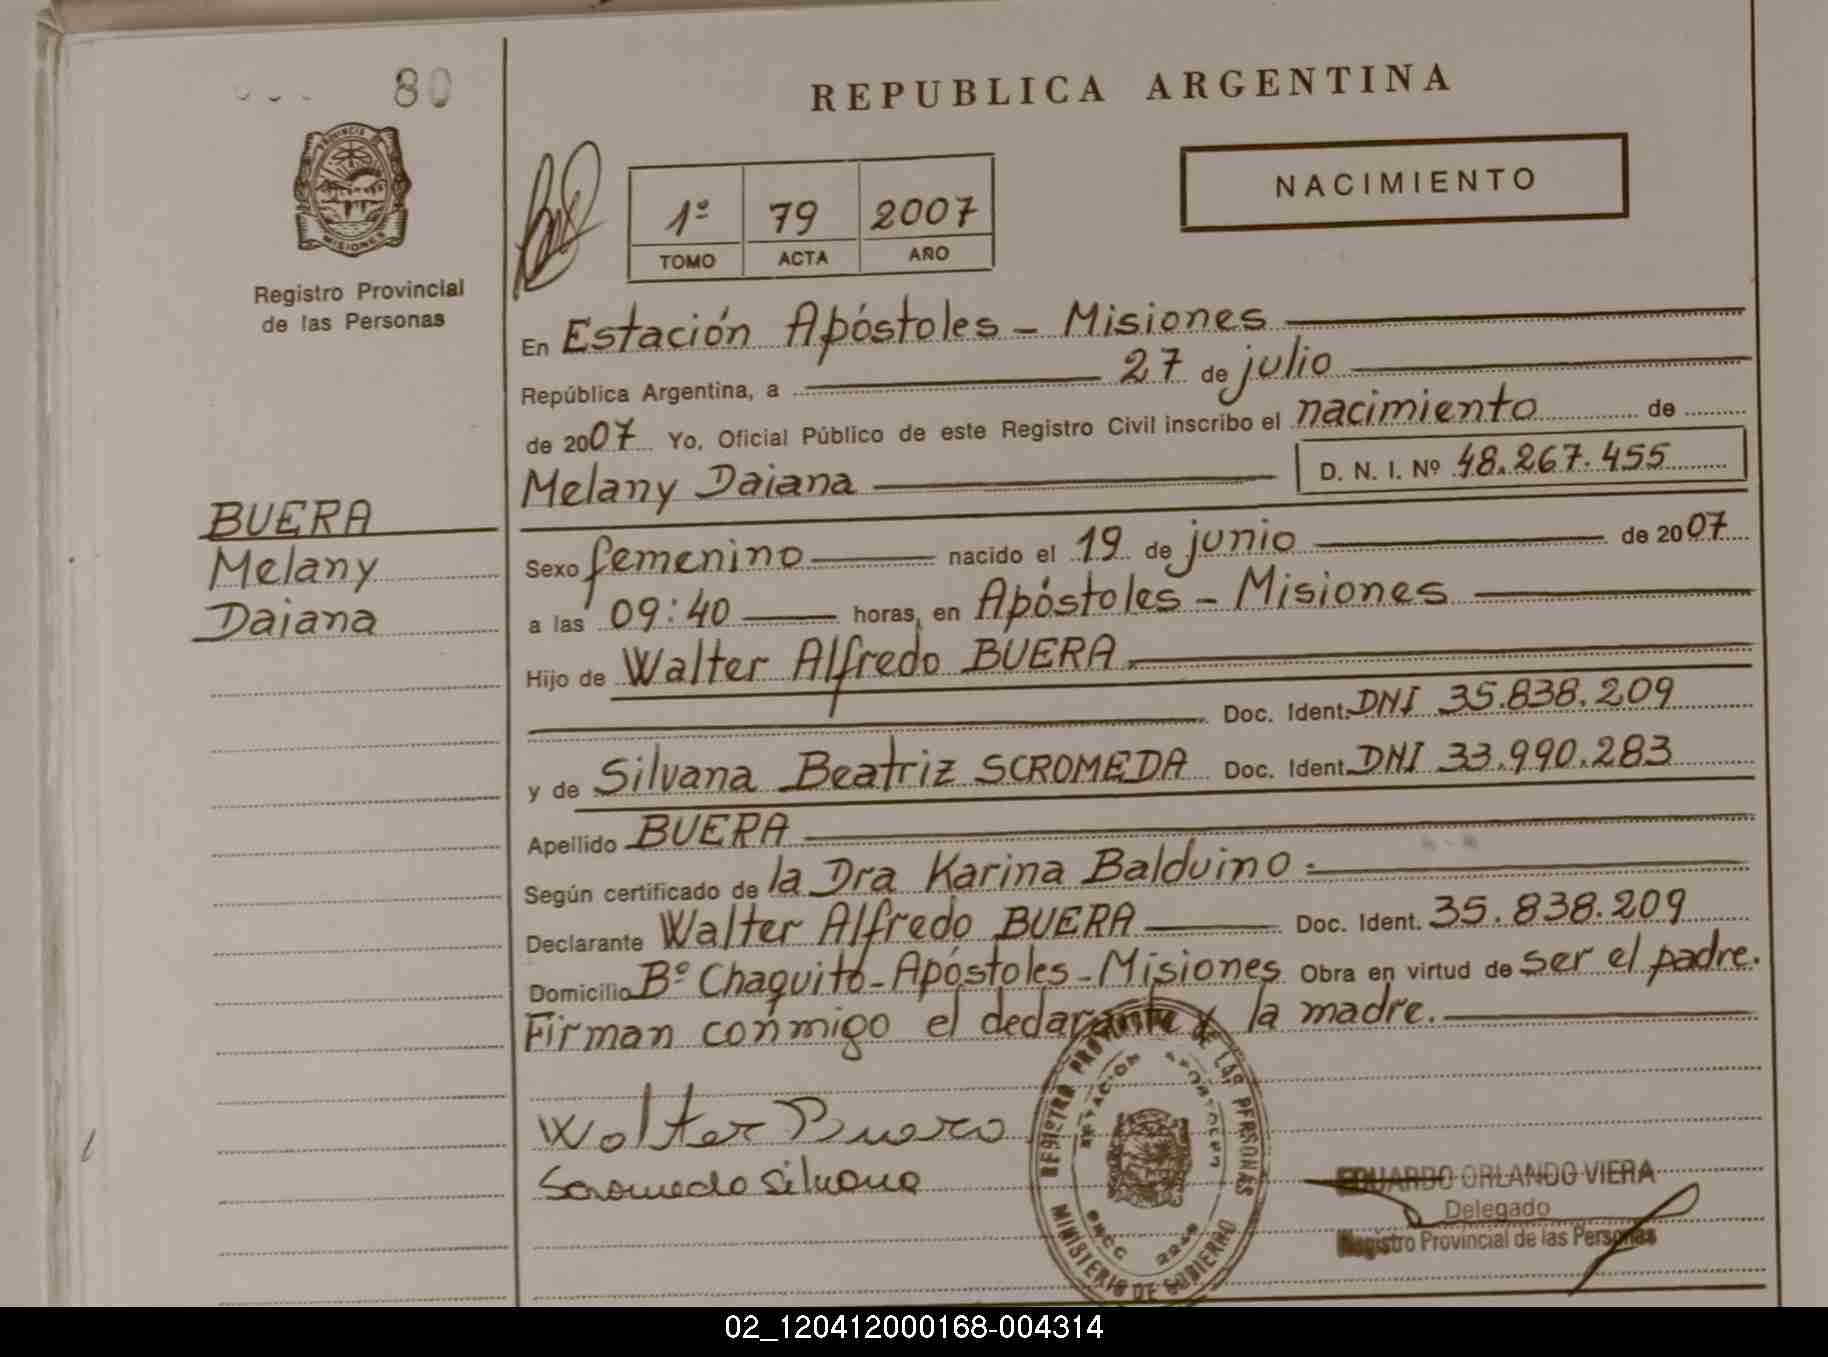 80
REPUBLICA ARGENTINA
PROVINCIA DE
MISIONES
Registro Provincial
de las Personas
1º 79 2007
TOMO ACTA AÑO
NACIMIENTO
En Estación Apóstoles - Misiones
República Argentina, a 27 de julio
de 2007 Yo, Oficial Público de este Registro Civil inscribo el nacimiento de
Melany Daiana D. N. I. Nº 48.267.455
BUERA
Melany
Daiana
Sexo femenino nacido el 19 de junio de 2007
a las 09:40 horas, en Apóstoles - Misiones
Hijo de Walter Alfredo BUERA
Doc. Ident. DNI 35.838.209
y de Silvana Beatriz SCROMEDA Doc. Ident. DNI 33.990.283
Apellido BUERA
Según certificado de la Dra Karina Balduino
Declarante Walter Alfredo BUERA Doc. Ident. 35.838.209
Domicilio Bº Chaquito - Apóstoles - Misiones Obra en virtud de ser el padre.
Firman conmigo el declarante y la madre.
Walter Buera
Scromeda Silvana
REGISTRO PROVINCIAL DE LAS PERSONAS
ESTACION APOSTOLES
MINISTERIO DE GOBIERNO
EDUARDO ORLANDO VIERA
Delegado
Registro Provincial de las Personas
02_120412000168-004314